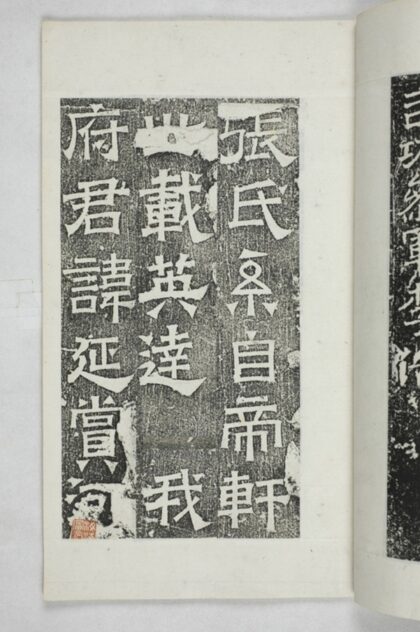 張氏系自帝軒
世載英達　我
府君諱延賞河